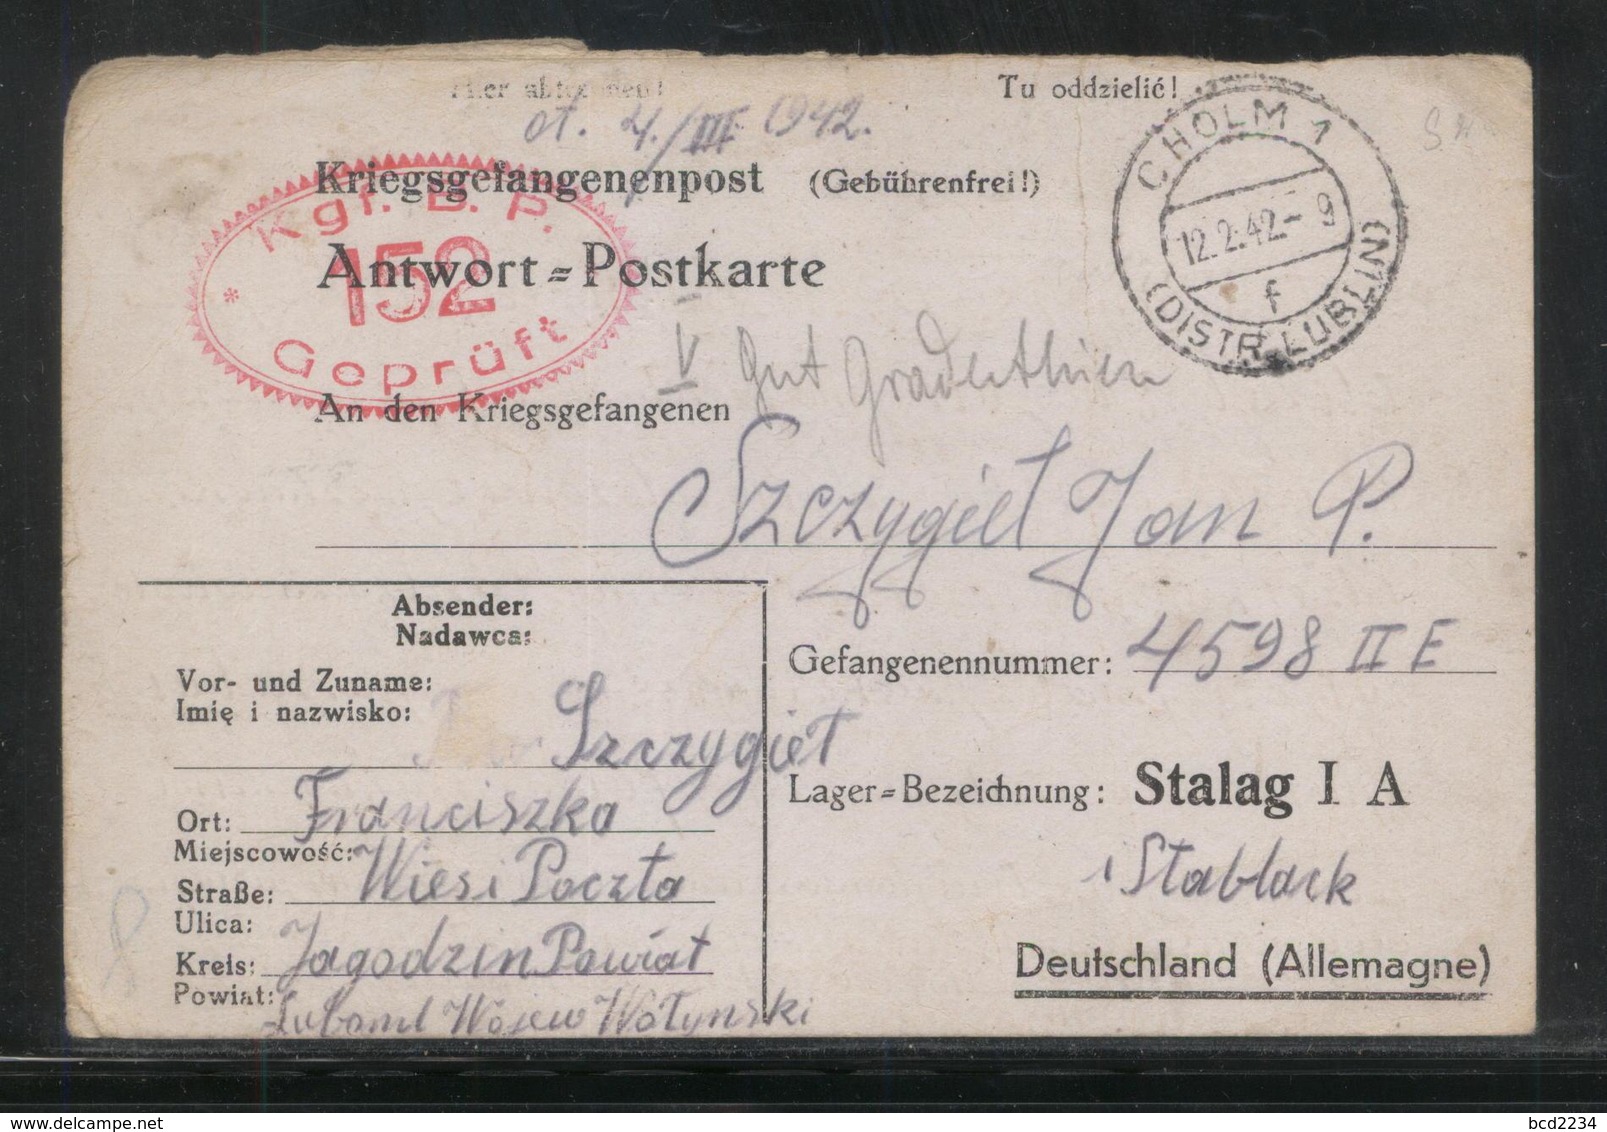 Hier abtrennen! Tu oddzielić!
ot. 4./III 1942.
Kriegsgefangenenpost (Gebührenfrei!)
Kgf. B. P.
152
* Geprüft
Antwort=Postkarte
CHOLM 1
12.2.42.- 9
f
(DISTR. LUBLIN)
V Gut
An den Kriegsgefangenen
Szczygieł Jan P.
Absender:
Nadawca:
Gefangenennummer: 4598 II E
Vor- und Zuname:
Imię i nazwisko:
Szczygieł
Lager=Bezeichnung: Stalag I A
Ort: Franciszka
Miejscowość:
Stablack
Straße: Wieś i Poczta
Ulica:
Kreis: Jagodzin Powiat
Deutschland (Allemagne)
Powiat:
Luboml Wojew Wołynski
delcampe.net
bcd2234